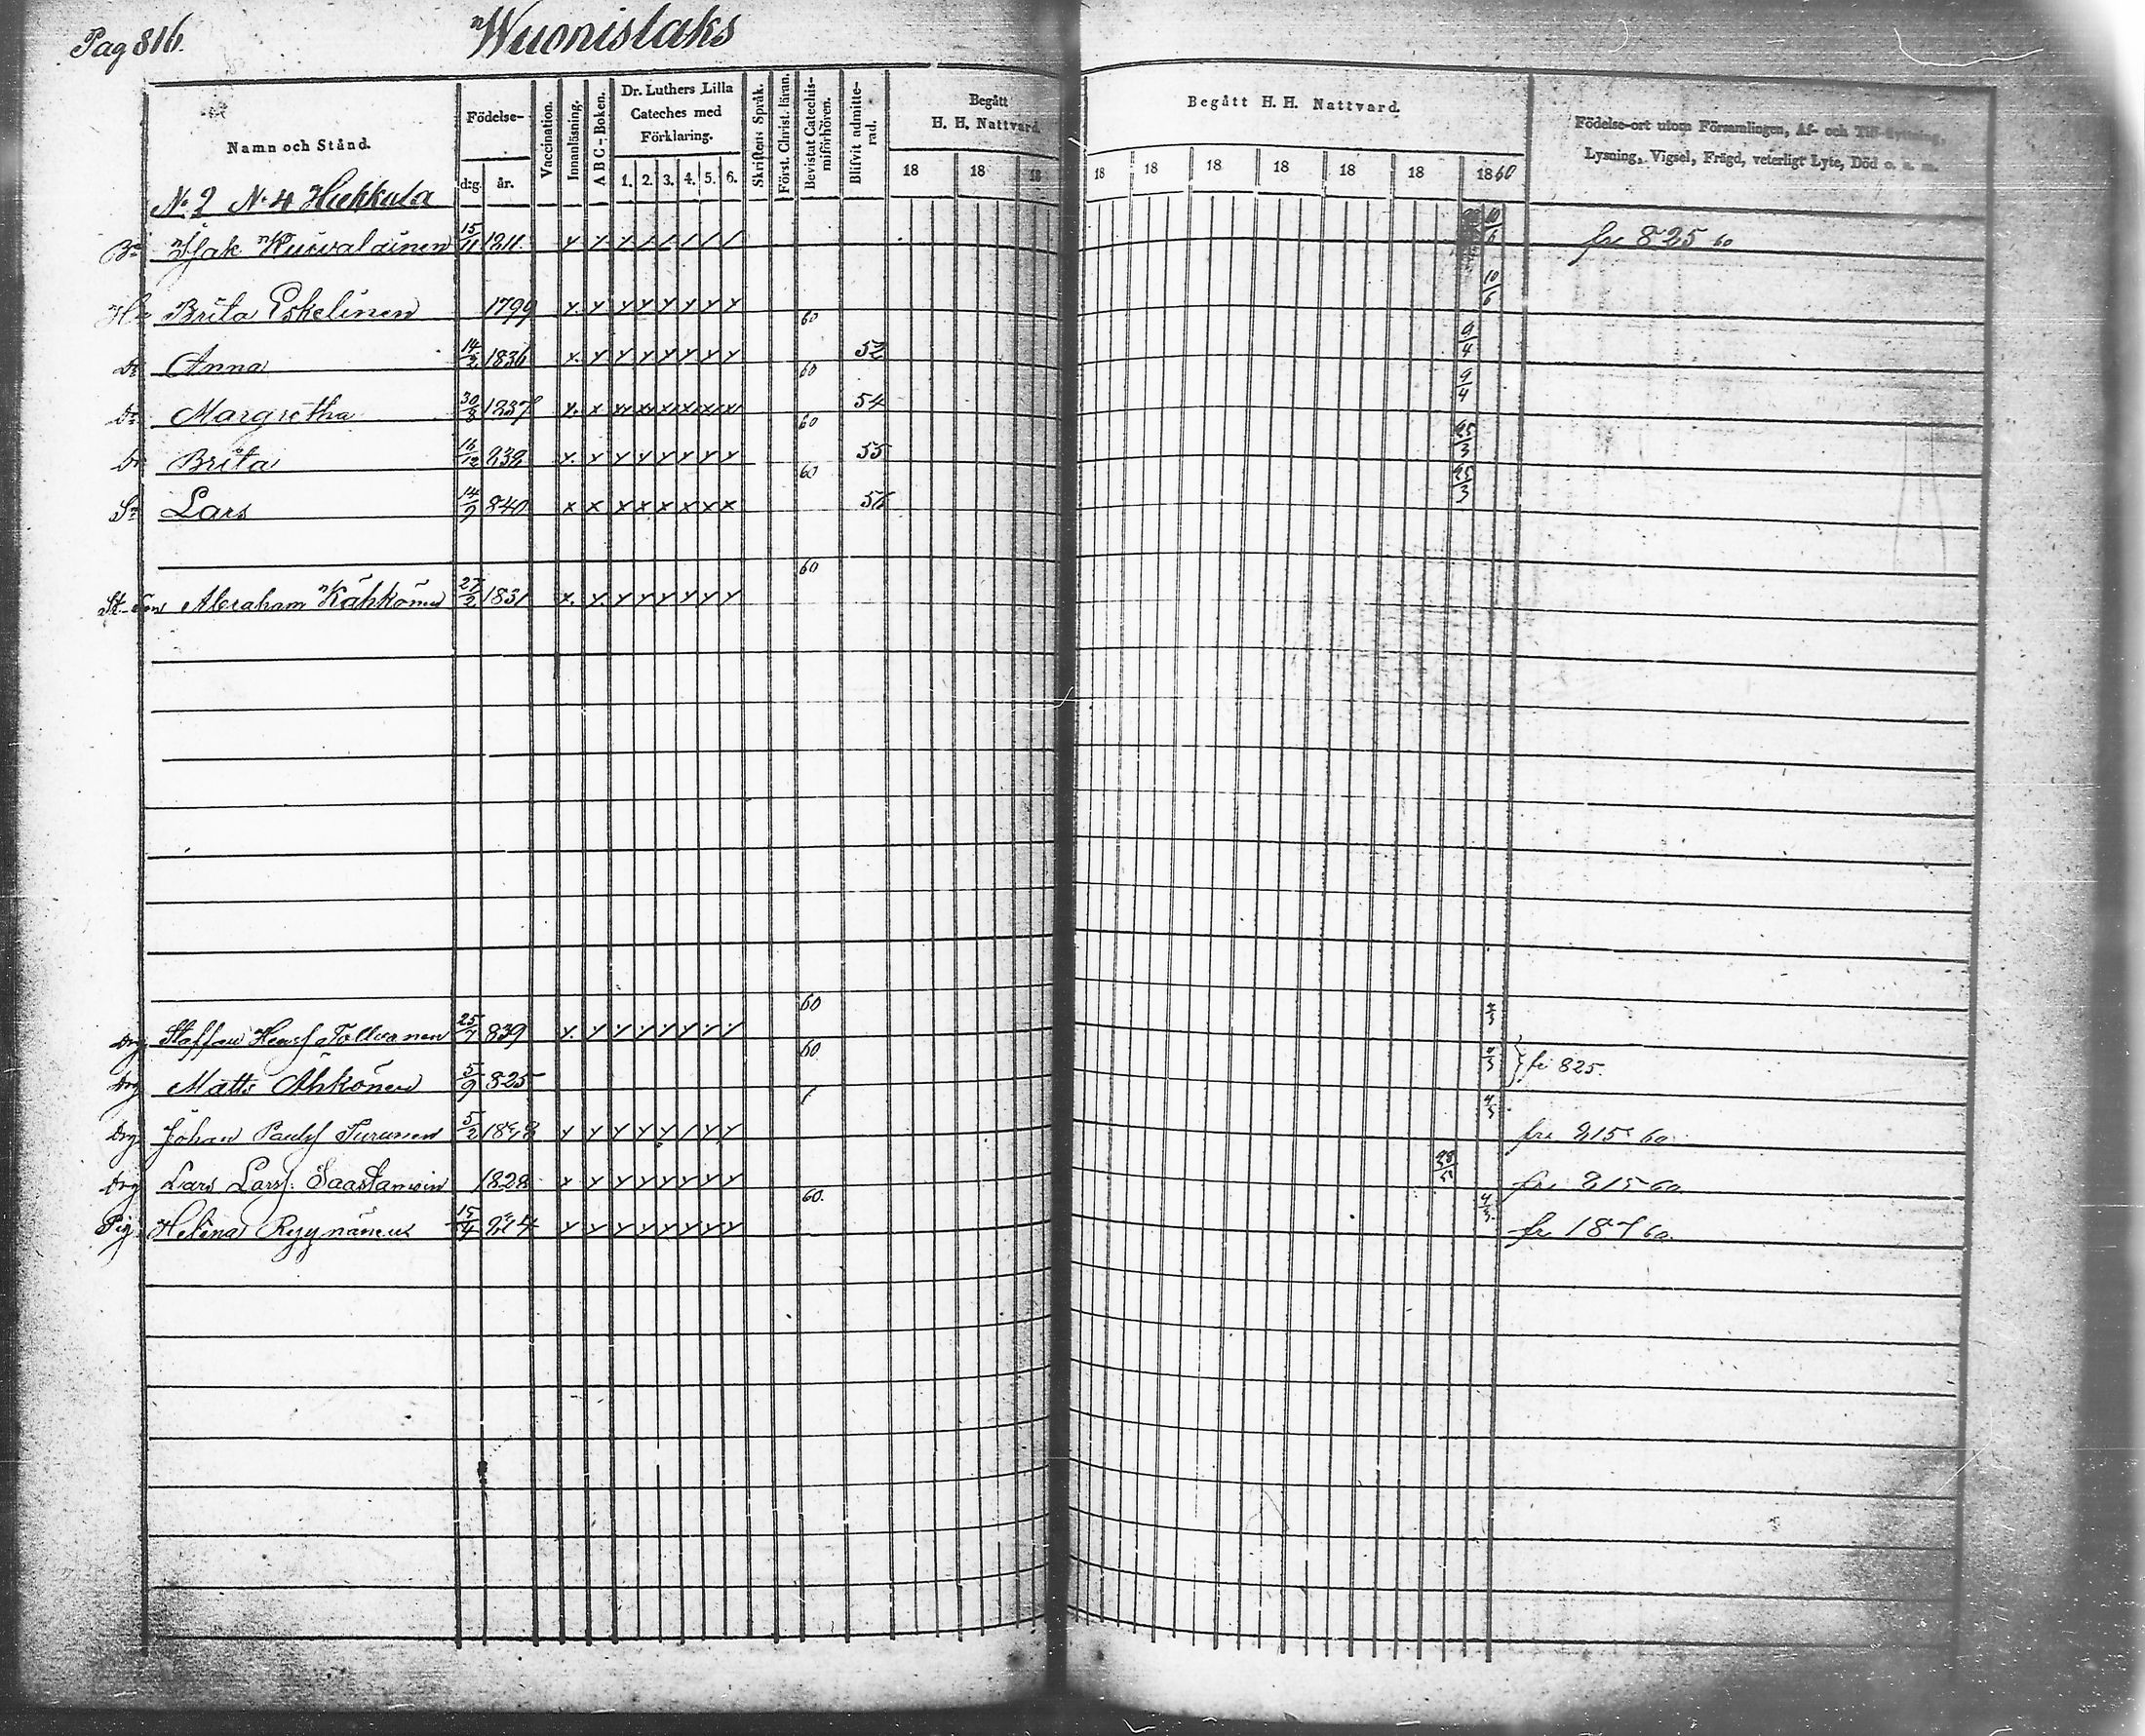 Pag 816.
Wuonislaks
Namn och Stånd.
Födelse-
d:g.
år.
Vaccination.
Innanläsning.
A B C - Boken.
Dr. Luthers Lilla
Cateches med
Förklaring.
1. 2. 3. 4. 5. 6.
Skriftens Språk.
Först. Christ. läran.
Bevistat Catechis-
miförhören.
Blifvit admitte-
rad.
Begått
H. H. Nattvard.
18 18 18
Begått H. H. Nattvard.
18 18 18 18 18 18 1860
Födelse-ort utom Församlingen, Af- och Till-flyttning,
Lysning, Vigsel, Frägd, veterligt Lyte, Död o. s. m.
N:2 N:4 Hukkala
15/11 10/6 fr 825 60
Brita Eskelinen 1799 x x x x x x x x 10/6
60
Dr Anna 14/2 1836 x x x x x x x x 52 9/4
60
Dr Margretha 30/8 1837 54 9/4
60
Dr Brita 16/12 838 x x x x x x x x 55 25/3
60
Sn Lars 14/9 840 x x x x x x x x 25/3
60
Abraham Kähkönen 27/2 1831 x x x x x x x x
60
Drg Staffan Tolvanen 25/7 839 x x x x x x x x
60
Drg Matts 5/9 825 fr 825.
Drg Johan Paulss Turunen 5/2 fr 815 60
Drg Lars Larss. Saastamoin 1828 x x x x x x x x fr 815 60
60.
Pig Helena 15/4 x x x x x x x x fr 187 60.